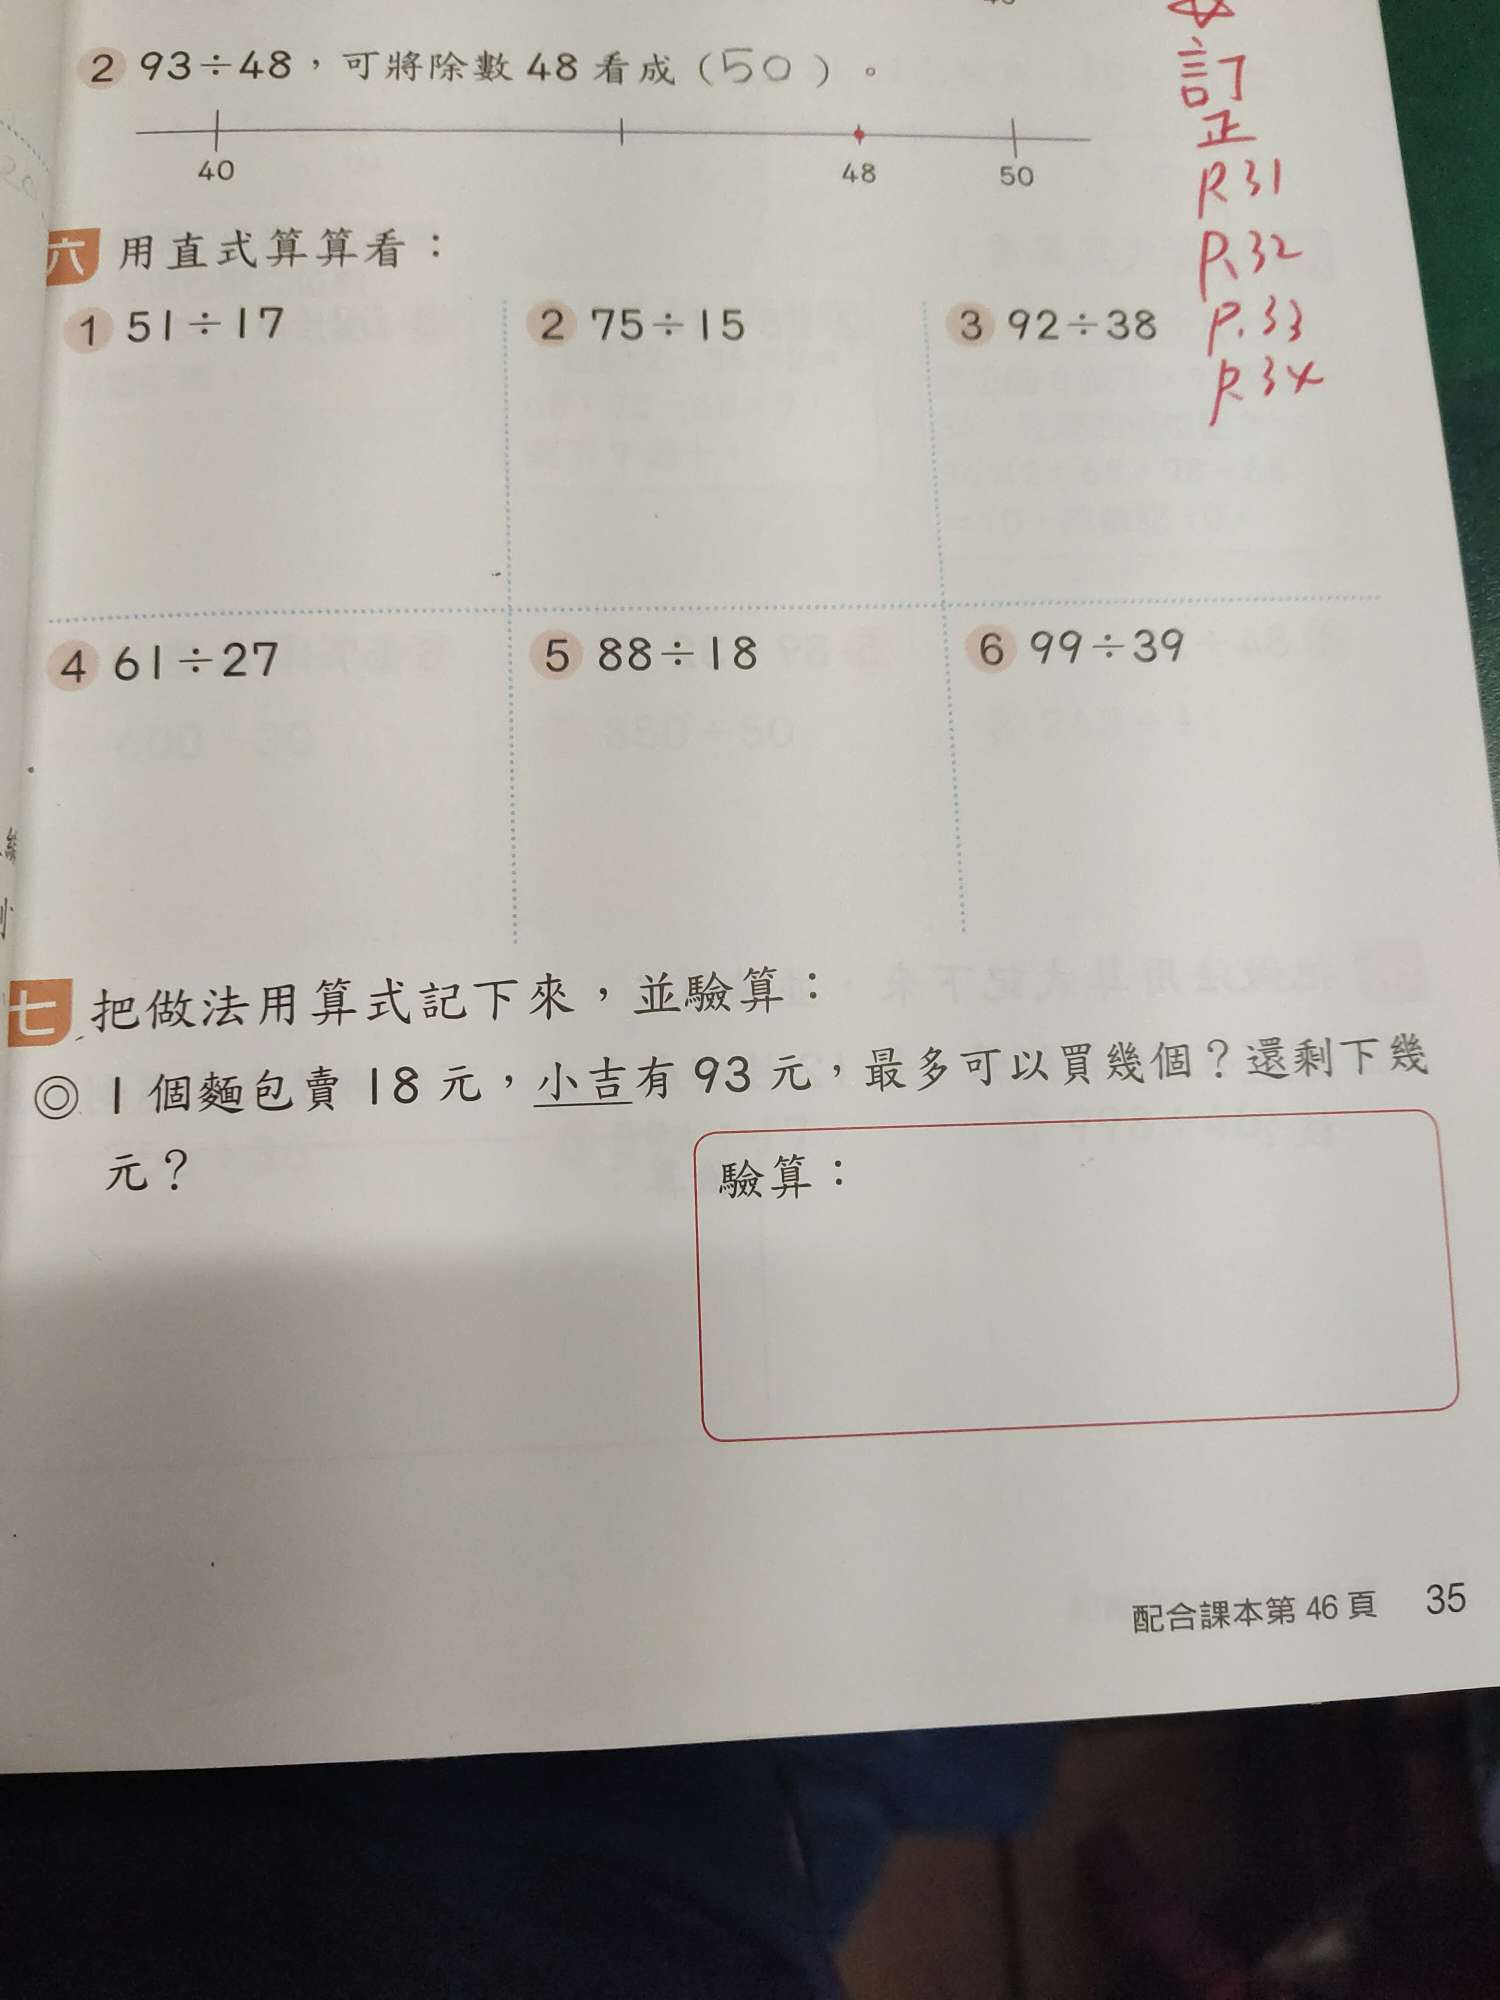 2 93÷48，可將除數 48 看成（50）。
40 48 50
六 用直式算算看：
1 51÷17 2 75÷15 3 92÷38
4 61÷27 5 88÷18 6 99÷39
七 把做法用算式記下來，並驗算：
◎ 1 個麵包賣 18 元，小吉有 93 元，最多可以買幾個？還剩下幾
元？
驗算：
配合課本第 46 頁 35
訂
正
P.31
P.32
P.33
P.34